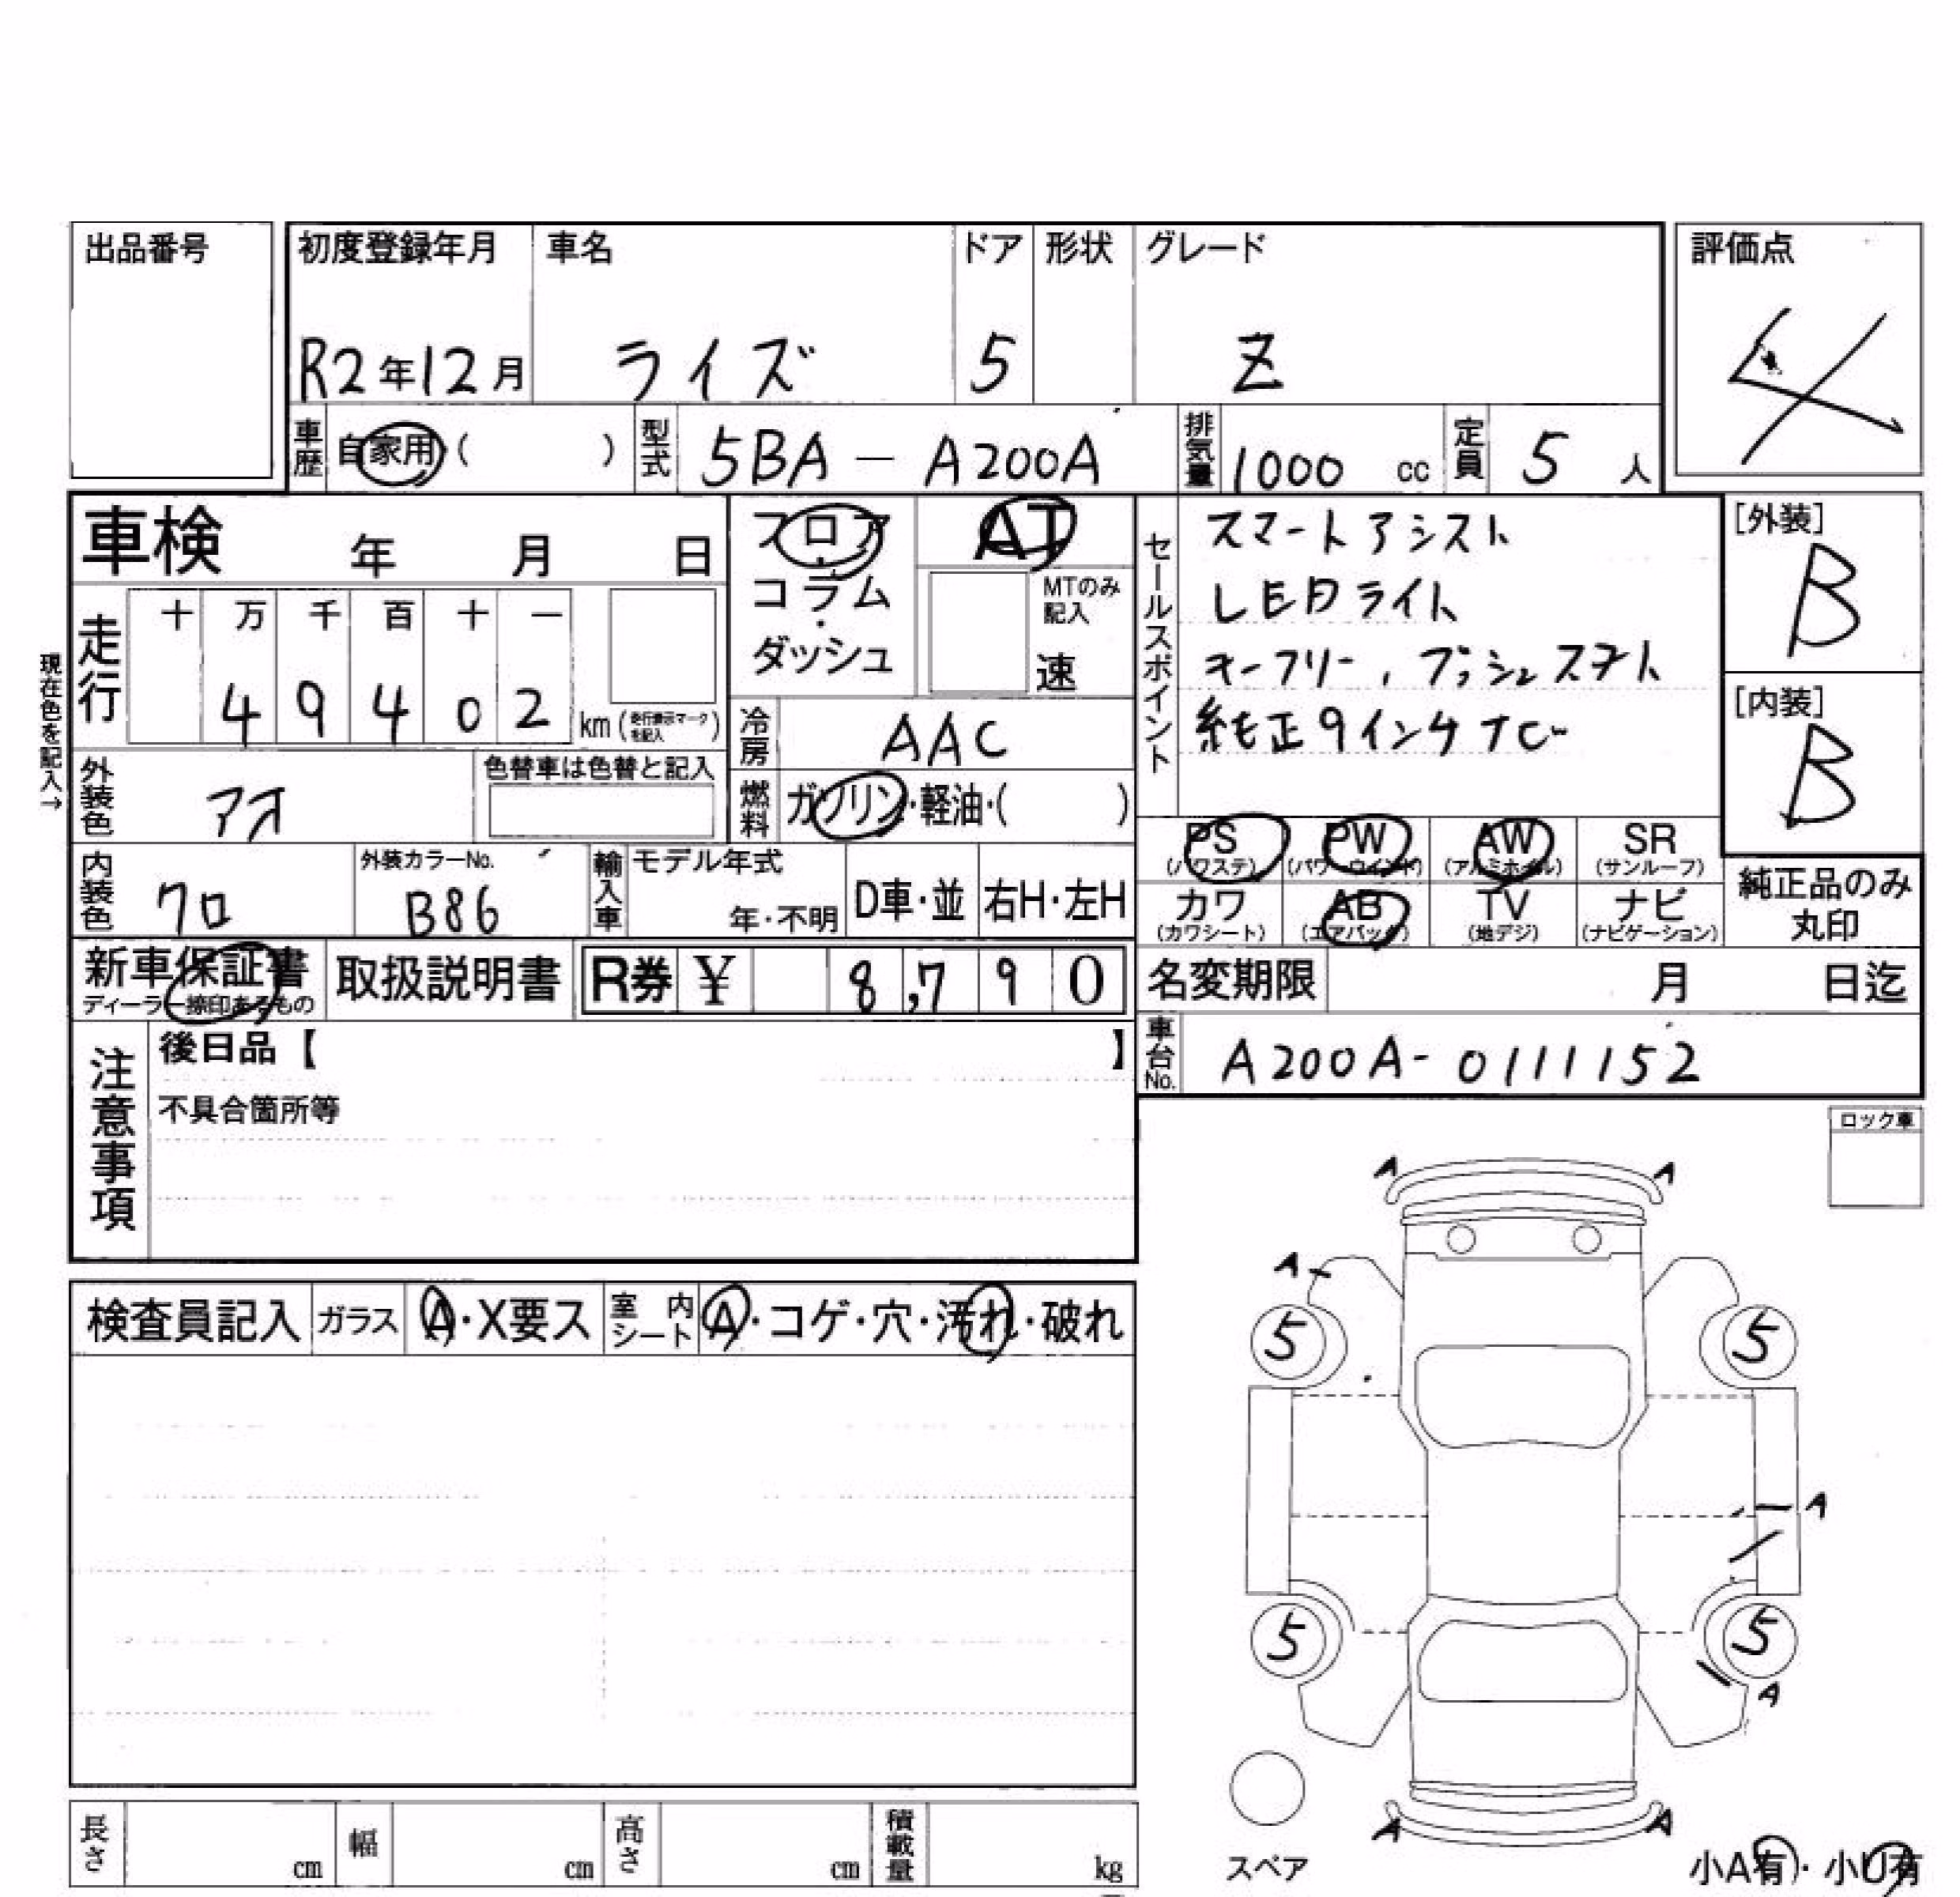 出品番号
初度登録年月 車名 ドア 形状 グレード 評価点
R2年12月 ライズ 5 Z 4
車歴 自家用 ( ) 型式 5BA - A200A 排気量 1000 cc 定員 5 人
車検 年 月 日
フロア・コラム・ダッシュ
AT
MTのみ記入
速
セールスポイント
スマートアシスト
LEDライト
キーフリー, プッシュスタート
純正9インチナビ
[外装]
B
[内装]
B
現在色を記入→
走行 十 万 千 百 十 一
4 9 4 0 2 km (走行表示マークを記入)
冷房 AAC
外装色 アオ 色替車は色替と記入
燃料 ガソリン・軽油・( )
PS AW PW SR
(パワステ) (パワーウインド) (アルミホイル) (サンルーフ)
カワ AB TV ナビ
(カワシート) (エアバック) (地デジ) (ナビゲーション)
純正品のみ丸印
内装色 クロ 外装カラーNo. B86 輸入車 モデル年式 年・不明 D車・並 右H・左H
新車保証書 取扱説明書 R券 ¥ 8,790 名変期限 月 日迄
ディーラー捺印あるもの
車台No. A200A-0111152
注意事項
後日品【 】
不具合箇所等
ロック車
検査員記入 ガラス A・X要ス 室内シート A・コゲ・穴・汚れ・破れ
A A
A
5 5
A
5 5
A
A A
スペア
小A有・小U有
長さ cm 幅 cm 高さ cm 積載量 kg